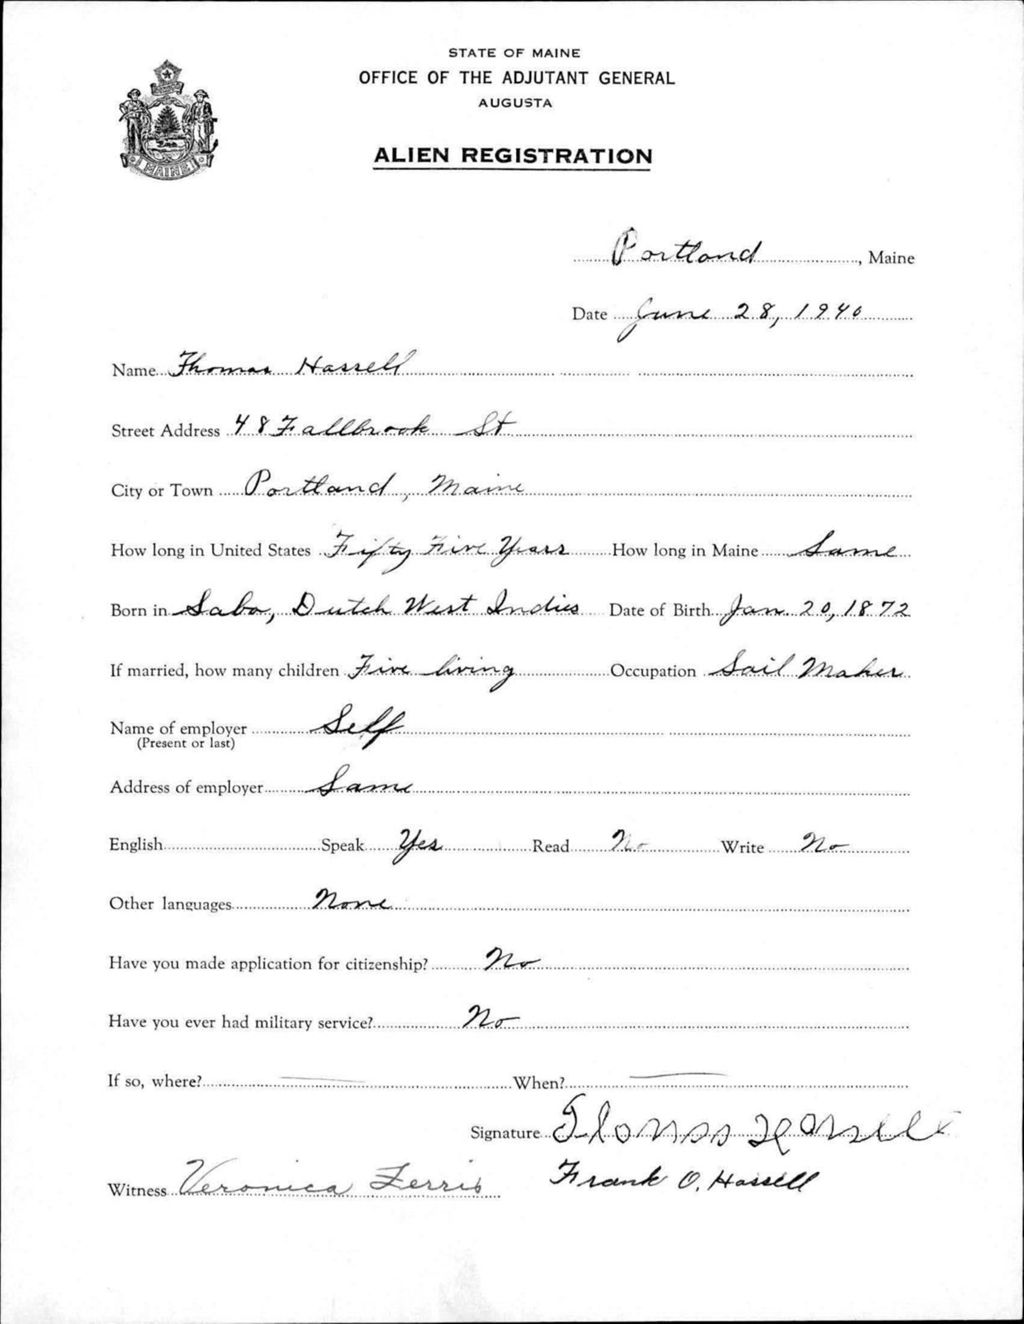 STATE OF MAINE
OFFICE OF THE ADJUTANT GENERAL
AUGUSTA
ALIEN REGISTRATION
MAINE
Portland, Maine
Date June 28, 1940
Name Thomas Hassell
Street Address 48 Fallbrook St
City or Town Portland, Maine
How long in United States Fifty Five Years How long in Maine Same
Born in Saba, Dutch West Indies Date of Birth Jan. 20, 1872
If married, how many children Five living Occupation Sail Maker
Name of employer Self
(Present or last)
Address of employer Same
English Speak Yes Read No Write No
Other languages None
Have you made application for citizenship? No
Have you ever had military service? No
If so, where? — When? —
Signature
Witness Veronica Ferris Frank O. Hassell